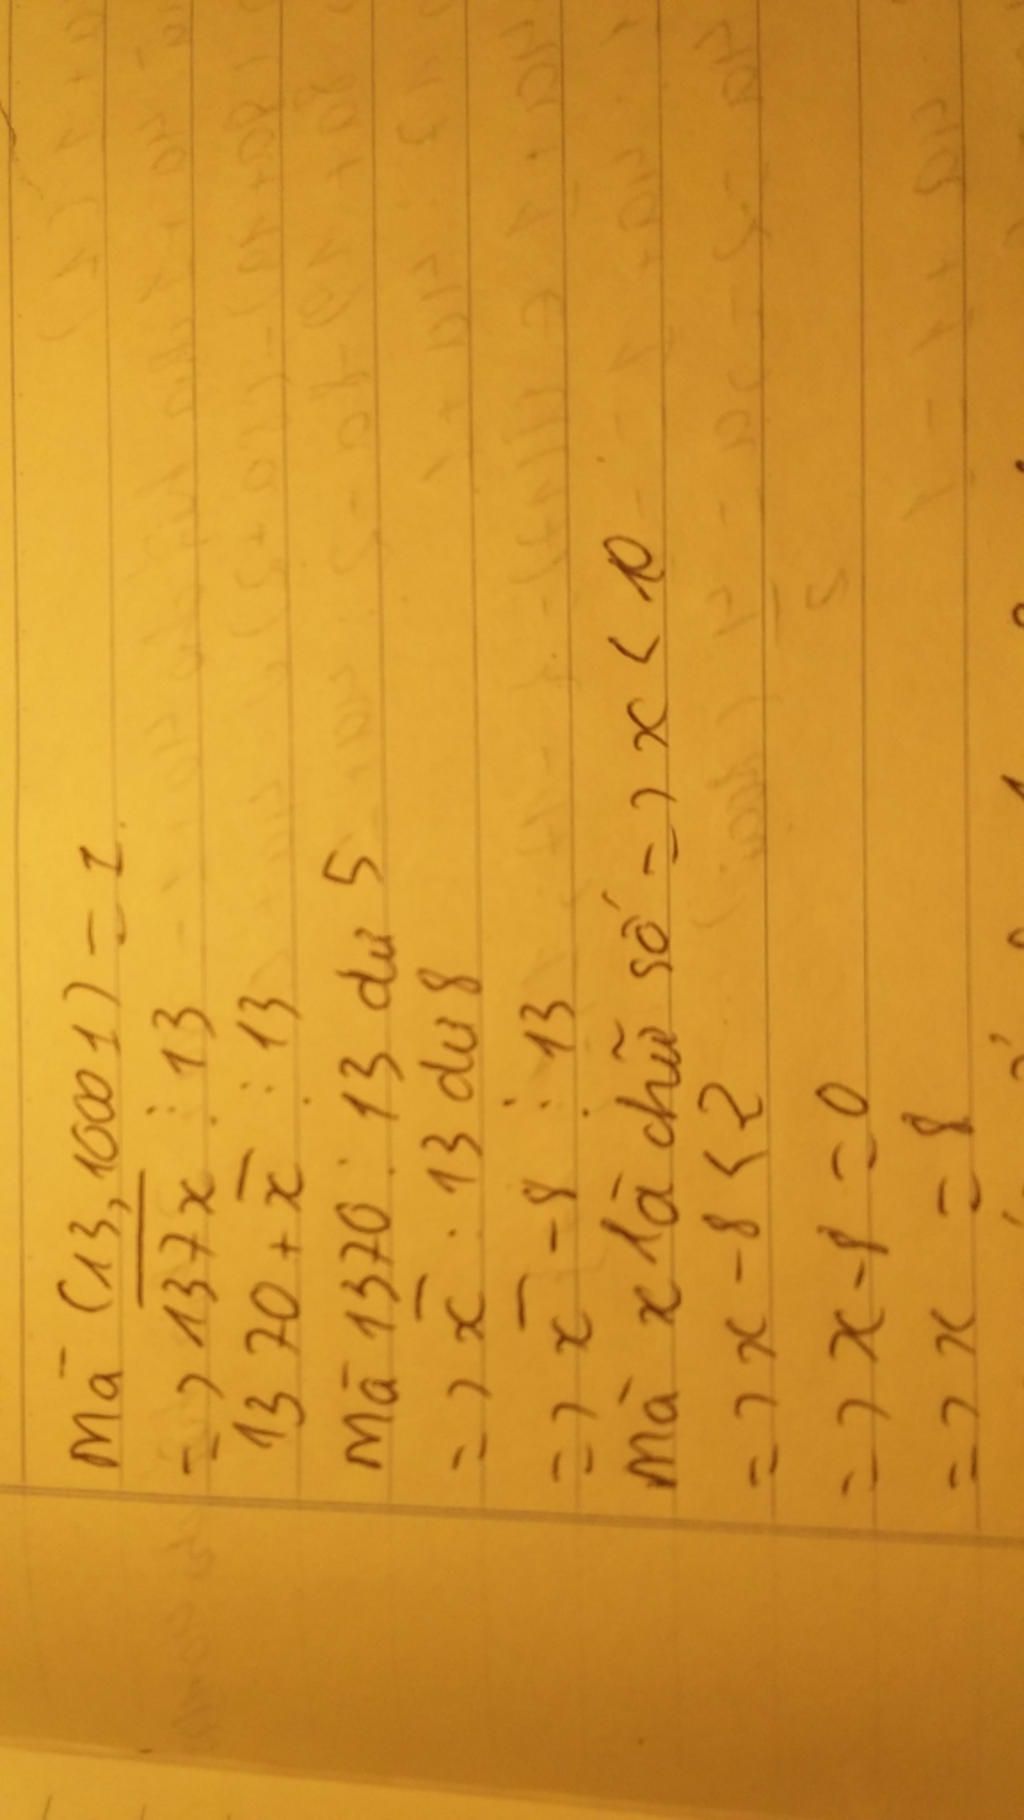 Mà (13, 10001) = 1
=> 137x ⋮ 13
1370 + x ⋮ 13
Mà 1370 : 13 dư 5
=> x : 13 dư 8
=> x - 8 ⋮ 13
Mà x là chữ số => x < 10
=> x - 8 < 2
=> x - 8 = 0
=> x = 8